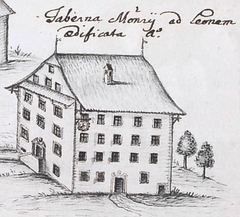 Taberna Monrÿ ad Leonem
edificata Aº